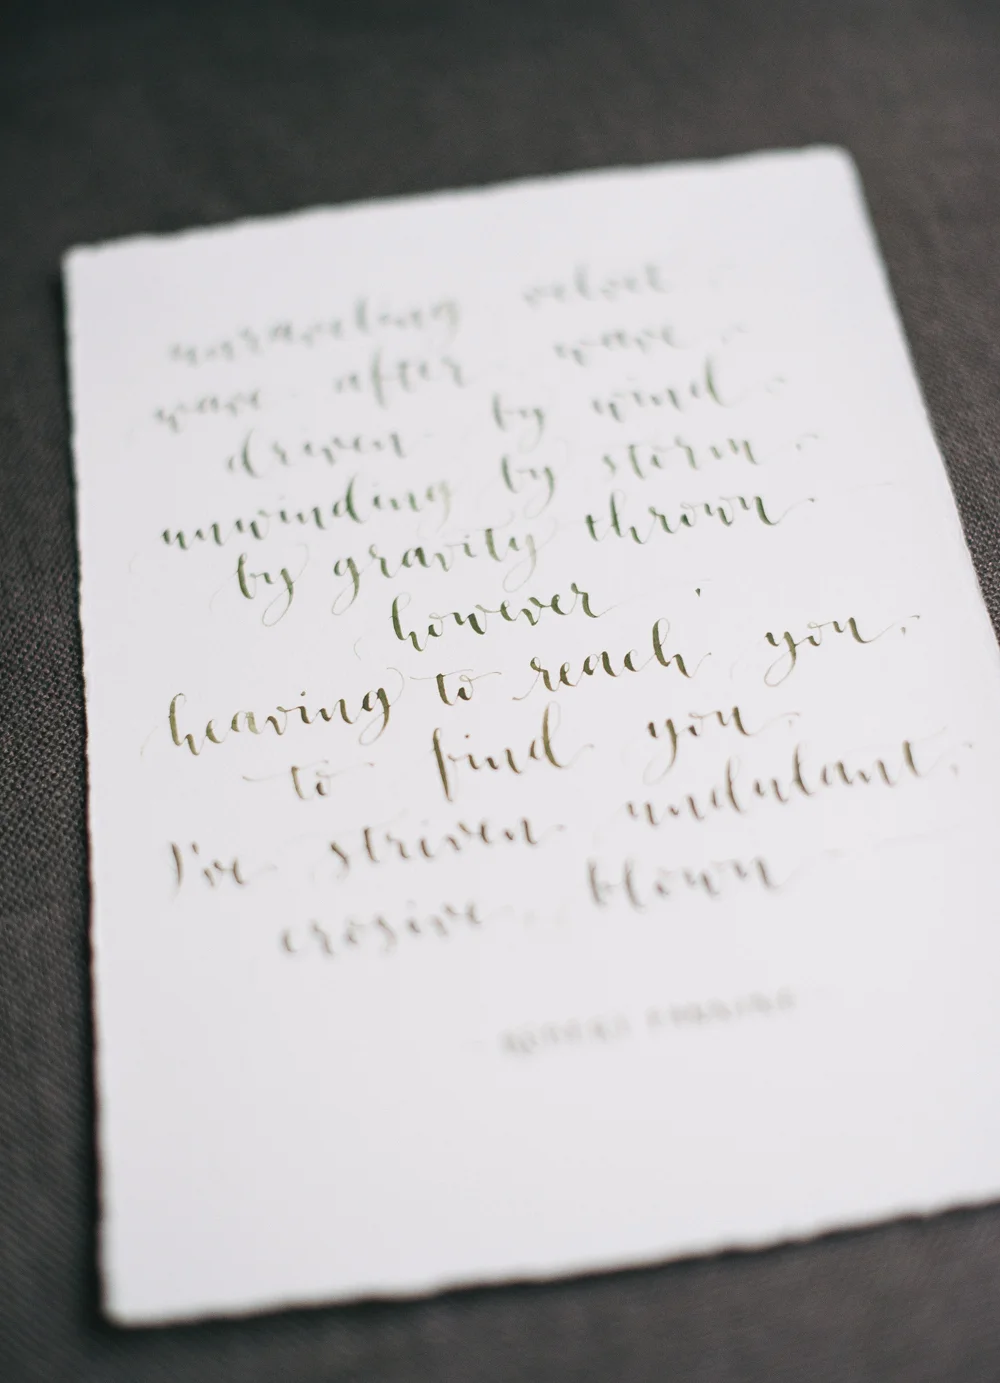 unraveling velvet
wave after wave
driven by wind
unwinding by storm
by gravity thrown
however
heaving to reach you,
to find you
I've striven undulant,
erosive blown